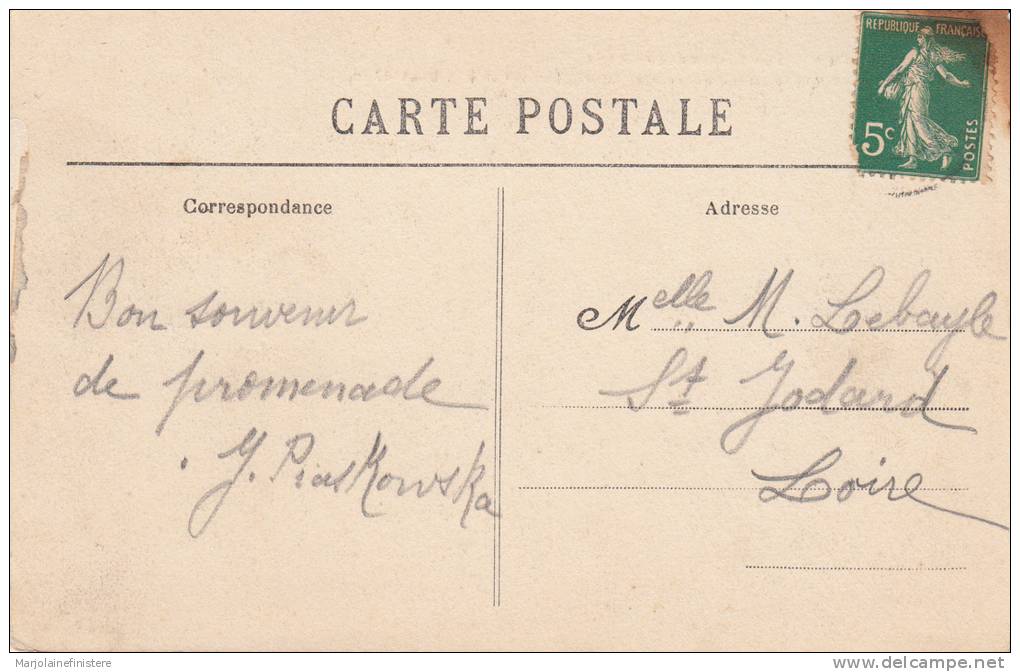 CARTE POSTALE
REPUBLIQUE FRANÇAISE
5c
POSTES
Correspondance
Bon souvenir
de promenade
Adresse
Melle M. Lebayle
St Jodard
Loire
Marjolainefinistere
delcampe.net